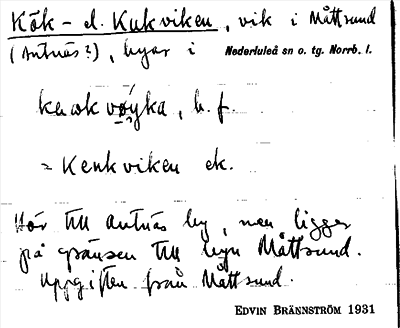 Kök- el. Kukviken, vik i Måttsund
(Antnäs?), byar i Nederluleå sn o. tg. Norrb. l.
b. f.
= Kenkviken ek.
Hör till Antnäs by, men ligger
på gränsen till byn Måttsund.
Uppgiften från Måttsund.
EDVIN BRÄNNSTRÖM 1931